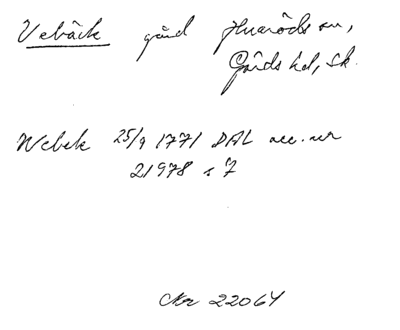 Vebäck gård Huaröds sn,
Gärds hd, Sk.
Webek 25/9 1771 DAL acc. nr
21978 s 7
22064